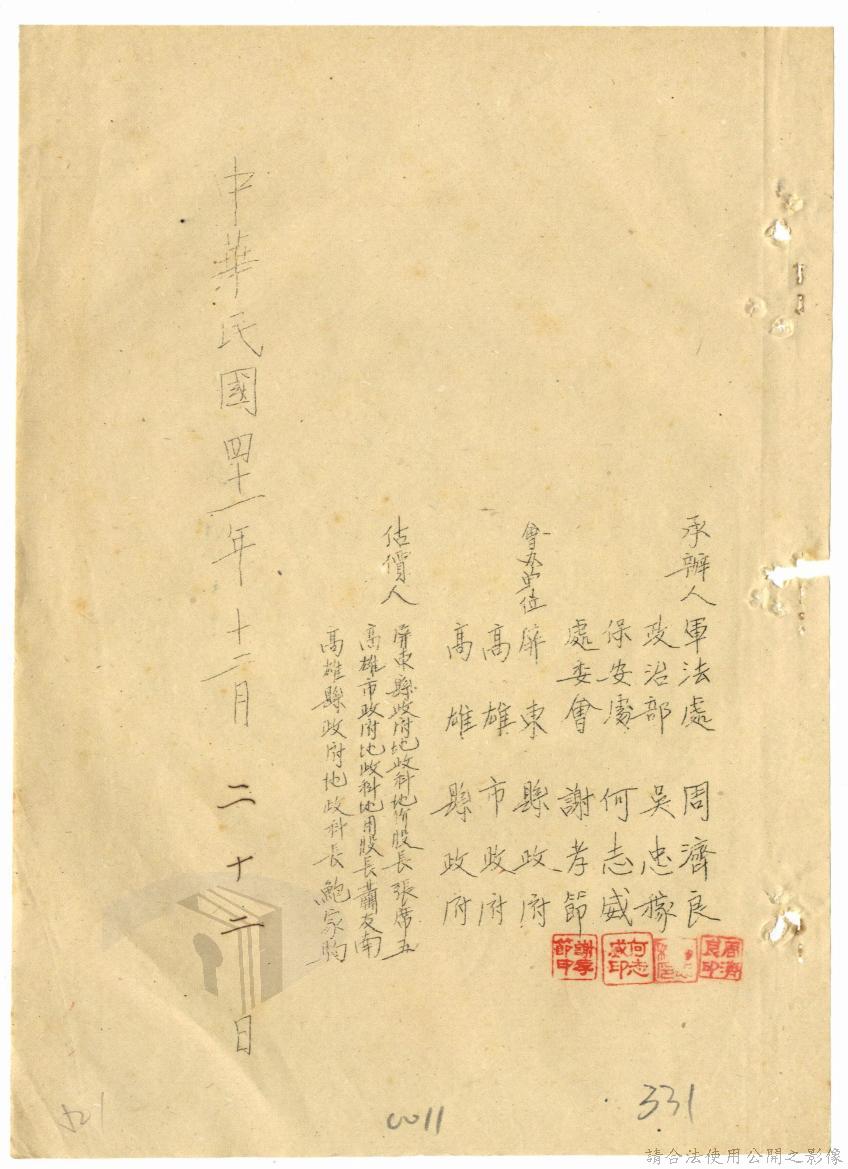 承辦人 軍法處 周濟良
政治部 吳忠稼
保安處 何志威
處委會 謝孝節
周濟良印
何志威印
謝孝節印
會办單位 屏東縣政府
高雄市政府
高雄縣政府
估價人 屏東縣政府地政科地价股長張席五
高雄市政府地政科地用股長蕭友南
高雄縣政府地政科長鮑家駒
中華民國四十一年十二月二十二日
331
0011
521
請合法使用公開之影像